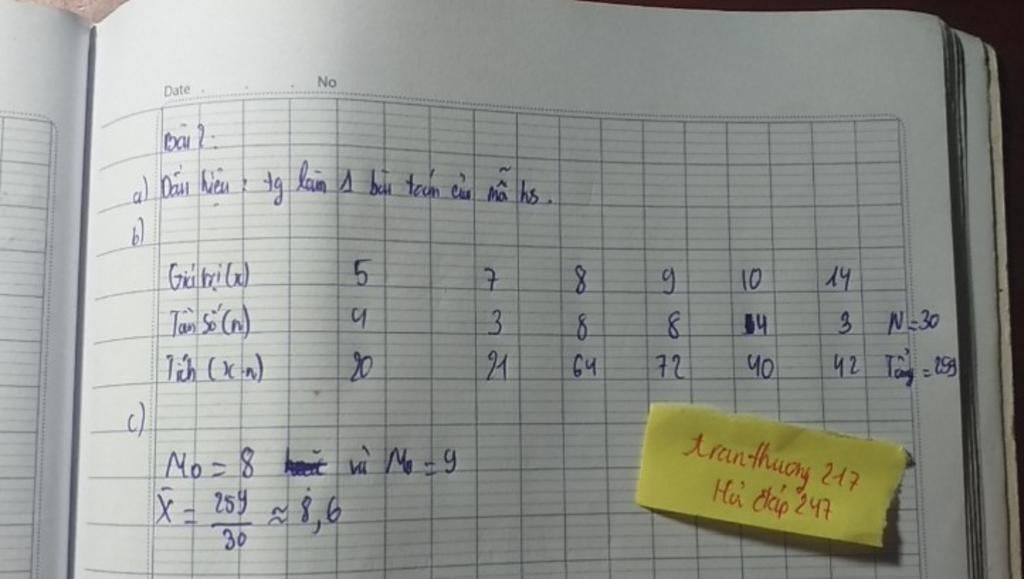 Date No
Bài 2:
a) Dấu hiệu : tg làm 1 bài toán của mỗi hs.
b)
Giá trị (x) 5 7 8 9 10 14
Tần số (n) 4 3 8 8 4 3 N=30
Tích (x.n) 20 21 64 72 40 42 Tổng = 259
c)
M0 = 8 và M0 = 9
X̄ = 259/30 ≈ 8,6
tranthuong 217
Hỏi đáp 247